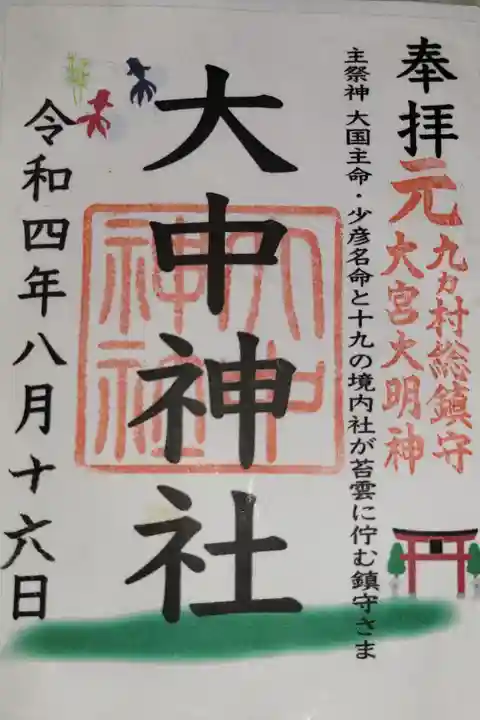 奉拝
元
九ヵ村総鎮守
大宮大明神
主祭神 大国主命・少彦名命と十九の境内社が苔雲に佇む鎮守さま
大中神社
大中神社
令和四年八月十六日